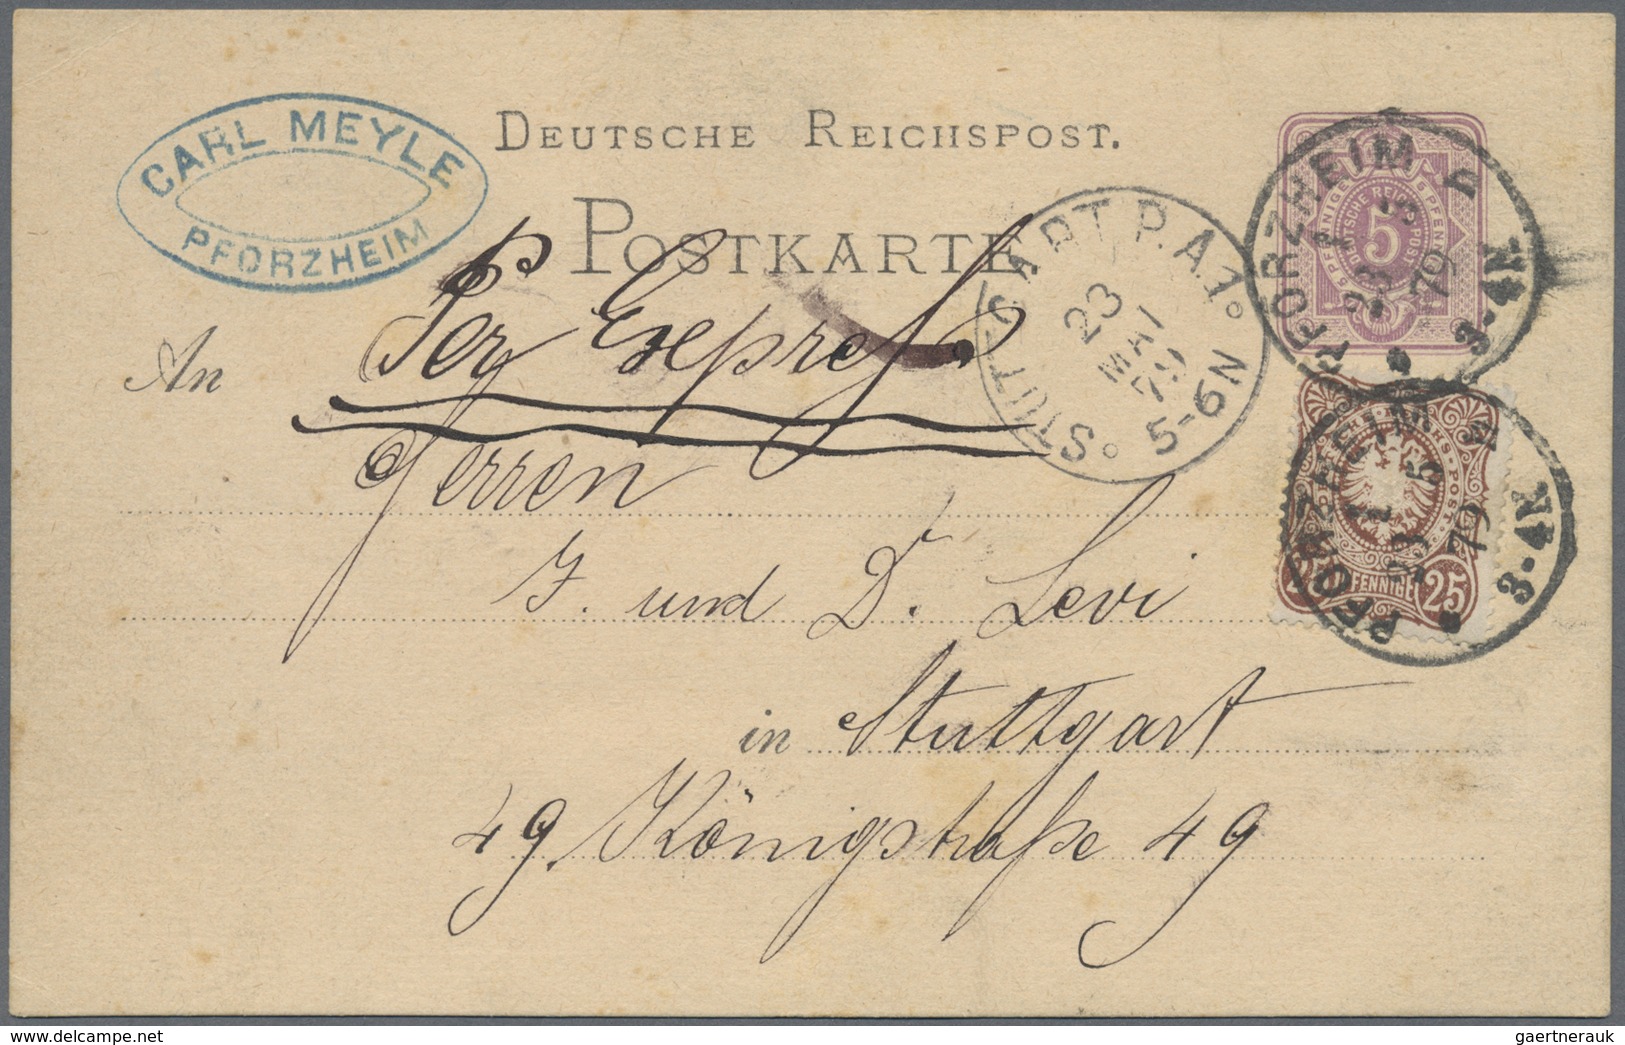 CARL MEYLE
PFORZHEIM
DEUTSCHE REICHSPOST.
POSTKARTE.
Per Expreß
An
Herren
J. und D. Levi
in Stuttgart
49. Königstraße 49
STUTTGART P.A.1
23
MAI
79
5-6N
5 PFENNIGE
DEUTSCHE REICHS-POST
5
PFORZHEIM
23 5
79
3-4N
PFENNIGE
25
PFORZHEIM
23 5
79
3-4N
gaertnerauk